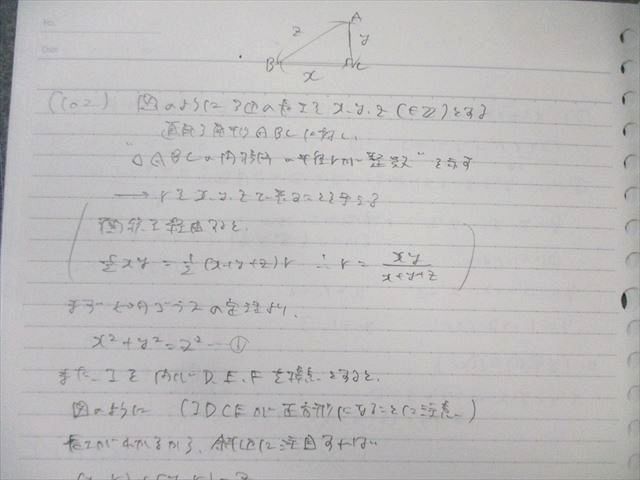 No.
Date
A
z
y
B
C
x
(102) 図のように3辺の長さを x, y, z (∈ℤ) とする
直角三角形ABCに対し、
"△ABCの内接円の半径rが整数"を示す
→ rをx, y, zで表すことを考える
面積を経由すると、
1/2 xy = 1/2 (x+y+z) r ∴ r = xy/(x+y+z)
まず ピタゴラスの定理より、
x² + y² = z² ―①
また、Iを内心、D, E, Fを接点とすると、
図のように (IDCEが正方形になることに注意)
長さがわかるから、斜辺に注目すれば